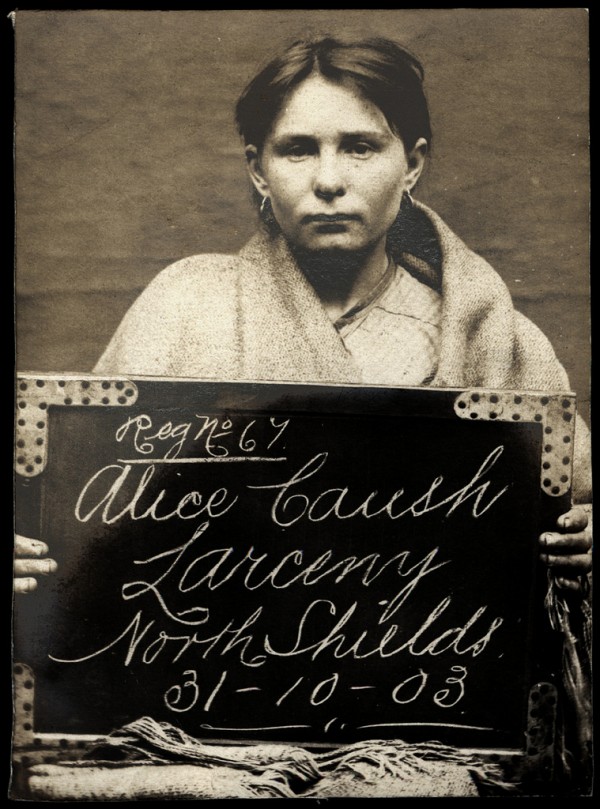 Reg No 67.
Alice Caush
Larceny
North Shields.
31-10-03